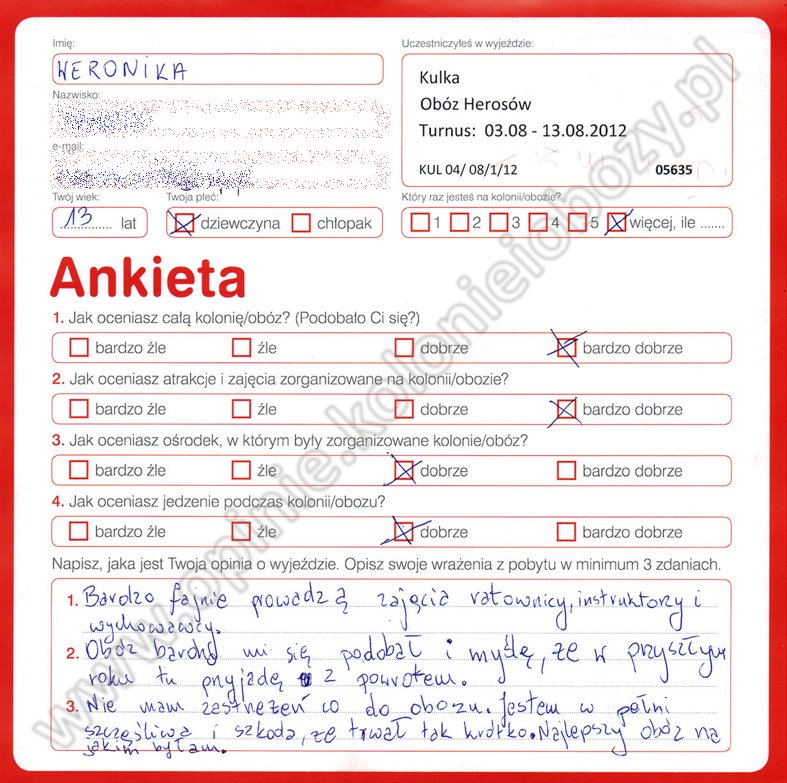 Imię:
WERONIKA
Nazwisko:
e-mail:
Twój wiek:
13 lat
Twoja płeć:
dziewczyna chłopak
Uczestniczyłeś w wyjeździe:
Kulka
Obóz Herosów
Turnus: 03.08 - 13.08.2012
KUL 04/ 08/1/12 05635
Który raz jesteś na kolonii/obozie?
1 2 3 4 5 więcej, ile .......
Ankieta
1. Jak oceniasz całą kolonię/obóz? (Podobało Ci się?)
bardzo źle źle dobrze bardzo dobrze
2. Jak oceniasz atrakcje i zajęcia zorganizowane na kolonii/obozie?
bardzo źle źle dobrze bardzo dobrze
3. Jak oceniasz ośrodek, w którym były zorganizowane kolonie/obóz?
bardzo źle źle dobrze bardzo dobrze
4. Jak oceniasz jedzenie podczas kolonii/obozu?
bardzo źle źle dobrze bardzo dobrze
Napisz, jaka jest Twoja opinia o wyjeździe. Opisz swoje wrażenia z pobytu w minimum 3 zdaniach.
1. Bardzo fajnie prowadzą zajęcia ratownicy, instruktorzy i
wychowawcy.
2. Obóz bardzo mi się podobał i myślę, że w przyszłym
roku tu przyjadę z powrotem.
3. Nie mam zastrzeżeń co do obozu. Jestem w pełni
szczęśliwa i szkoda, że trwał tak krótko. Najlepszy obóz na
jakim byłam.
www.opinie.kolonieiobozy.pl